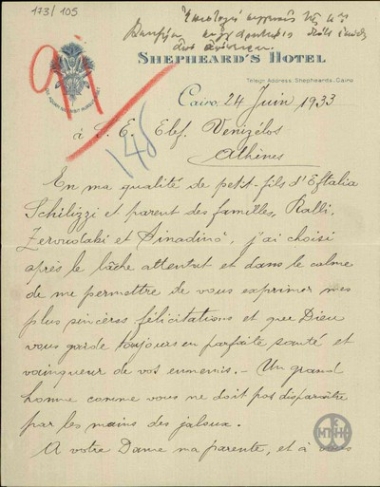 173/105
Shepheard's Hotel
Telegr. Address, Shepheards, Cairo
91
146
Cairo, 24 Juin 1933
à S. E. Elef. Venizélos
Athènes
En ma qualité de petit-fils d'Eftalia
Schilizzi et parent des familles, Ralli,
Zervoudaki et Sinadino, j'ai choisi
après le lâche attentat et dans le calme
de me permettre de vous exprimer mes
plus sincères félicitations et que Dieu
vous garde toujours en parfaite santé et
vainqueur de vos ennemis. - Un grand
homme comme vous ne doit pas disparaître
par les mains des jaloux.
A votre Dame ma parente, et à vous